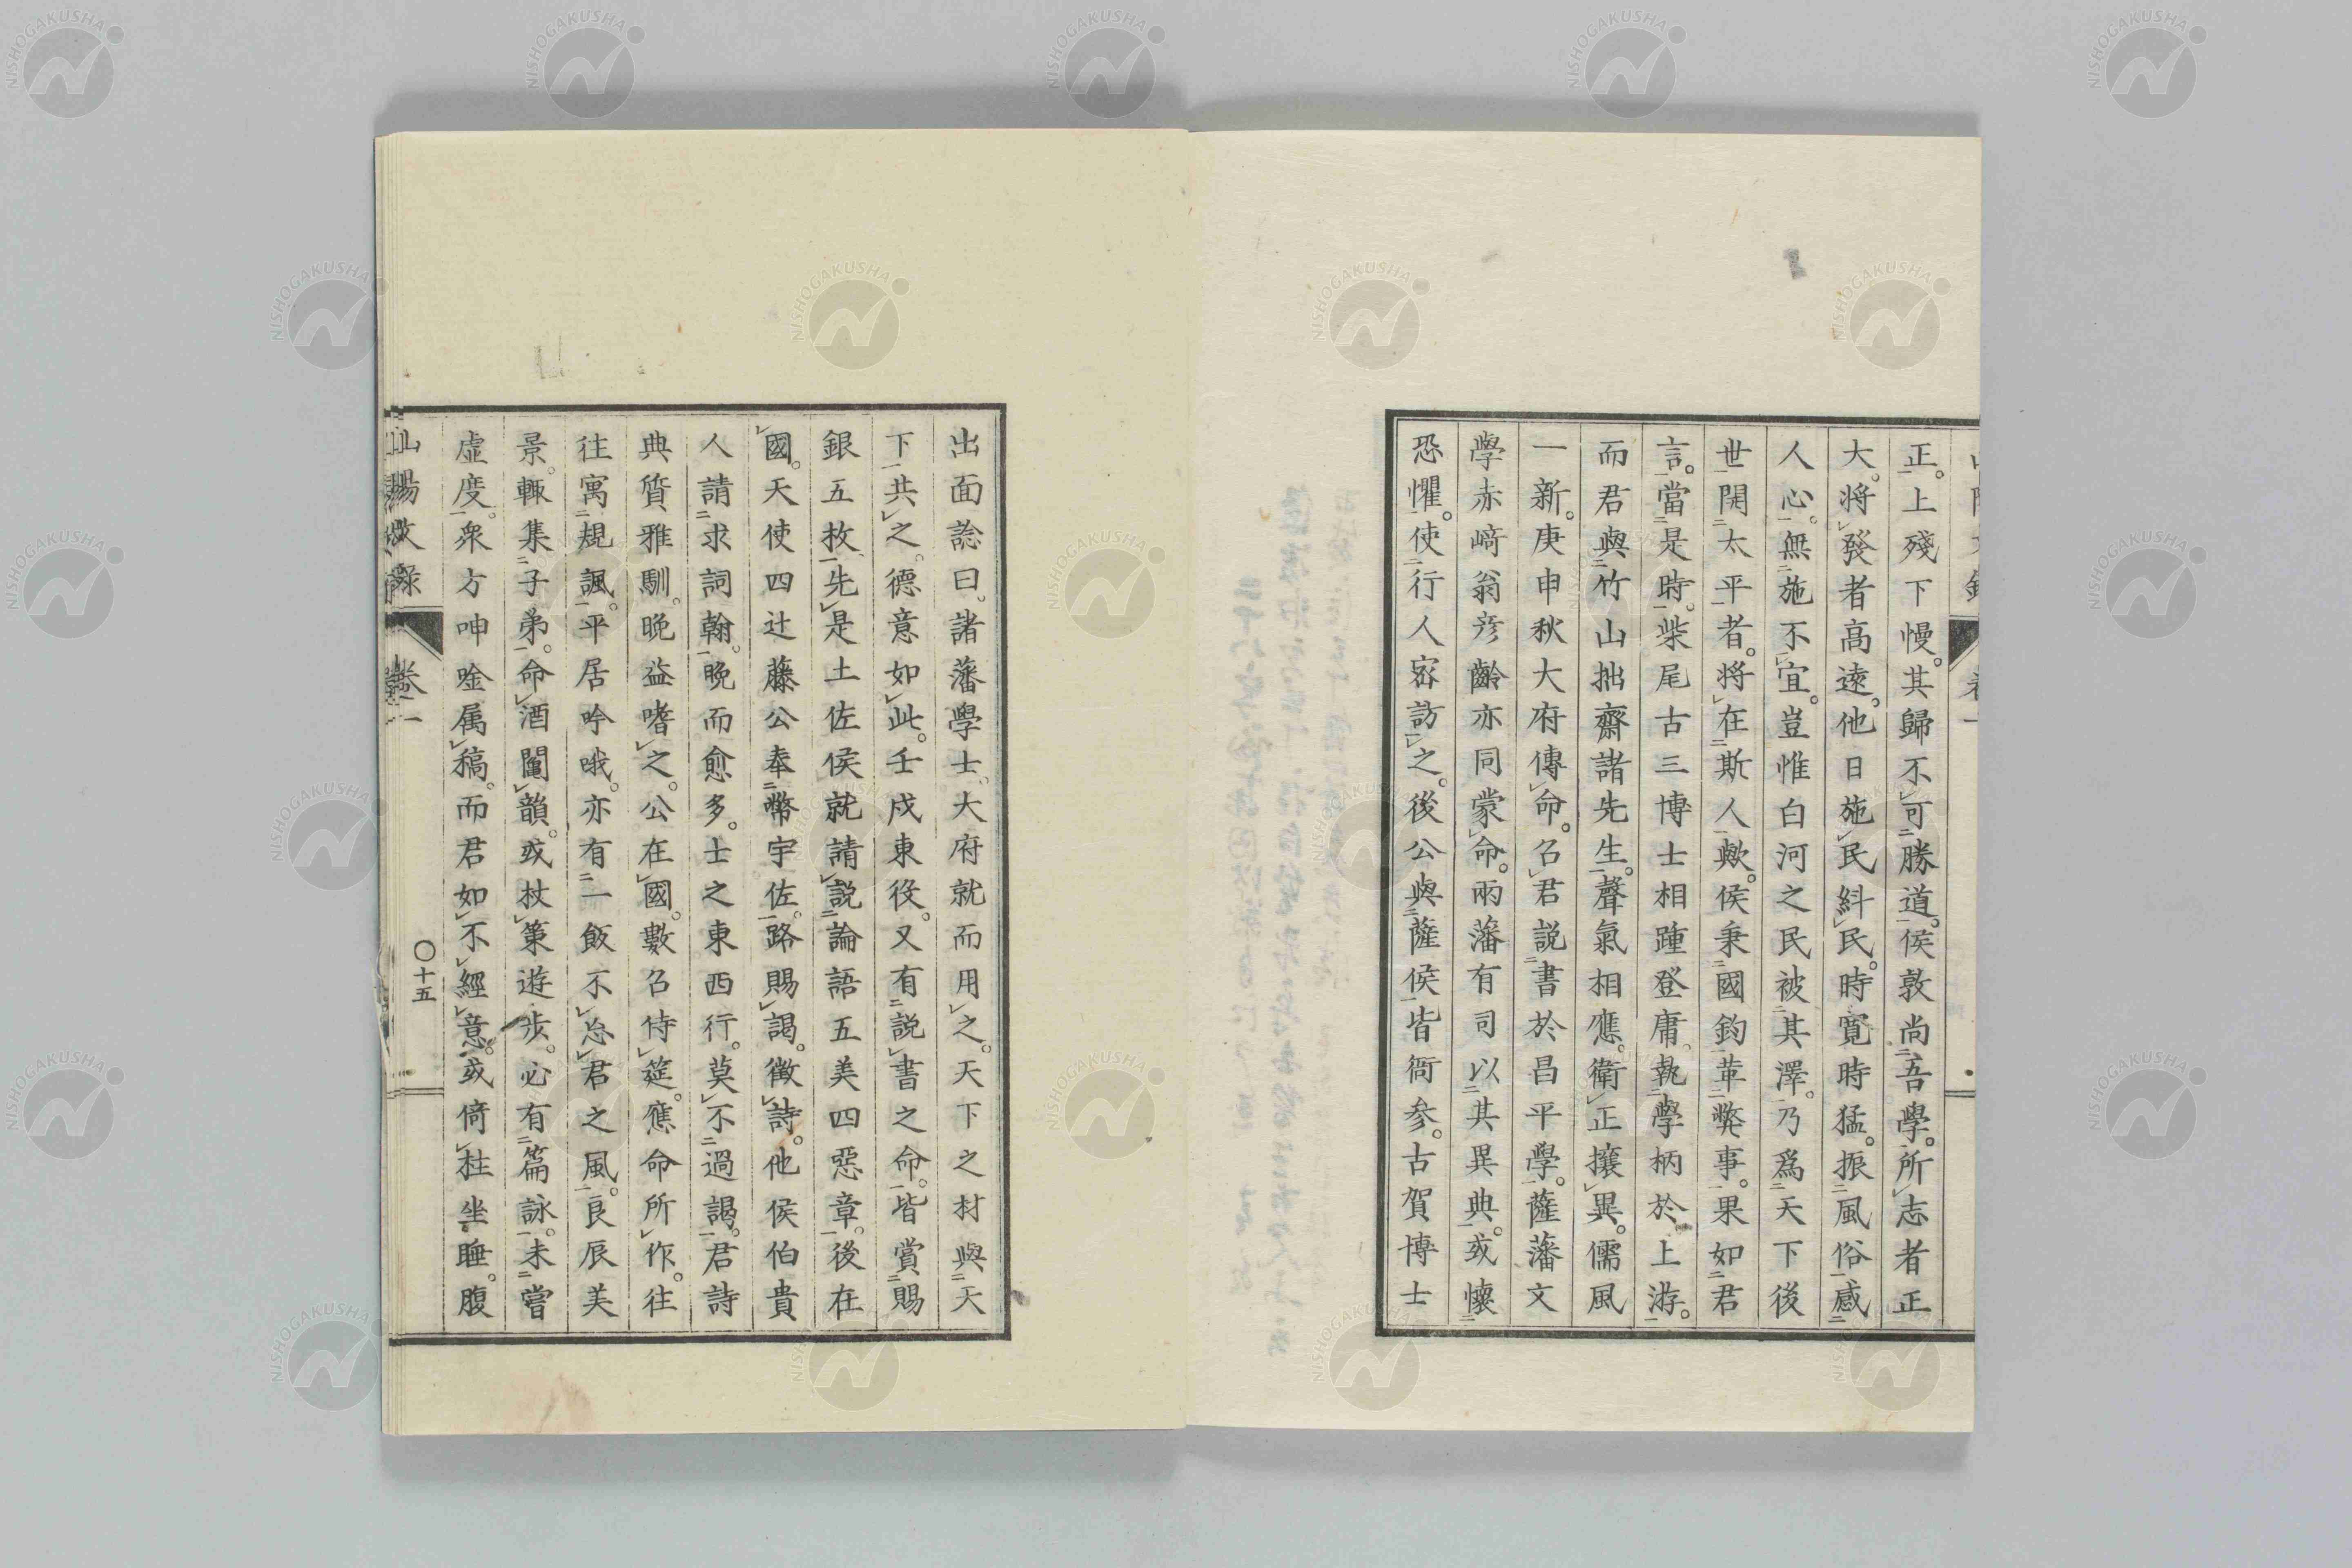 正。上殘下慢。其歸不可勝道。侯敦尚吾學。所志者正
大。將發者高遠。他日施民糾民。時寬時猛。振風俗感
人心。無施不宜。豈惟白河之民被其澤。乃爲天下後
世開太平者。將在斯人歟。侯秉國鈞革弊事。果如君
言。當是時。柴尾古三博士相踵登庸。執學柄於上游。
而君與竹山拙齋諸先生。聲氣相應。衛正攘異。儒風
一新。庚申秋大府傳命。召君説書於昌平學。薩藩文
學赤﨑翁彦齡亦同蒙命。兩藩有司以其異典。或懷
恐懼。使行人密訪之。後公與薩侯皆衙參。古賀博士
出面諗曰。諸藩學士。大府就而用之。天下之材與天
下共之。德意如此。壬戌東役。又有説書之命。皆賞賜
銀五枚。先是土佐侯就請説論語五美四惡章。後在
國。天使四辻藤公奉幣宇佐。路賜謁。徵詩。他侯伯貴
人請求詞翰。晩而愈多。士之東西行。莫不過謁。君詩
典質雅馴。晩益嗜之。公在國。數召侍筵。應命所作。往
往寓規諷。平居吟哦。亦有一飯不忘君之風。良辰美
景。輙集子弟。命酒鬮韻。或杖策遊步。必有篇詠。未嘗
虛度。衆方呻唫属稿。而君如不經意。或倚柱坐睡。腹
山陽文錄
卷一
〇十五
NISHOGAKUSHA